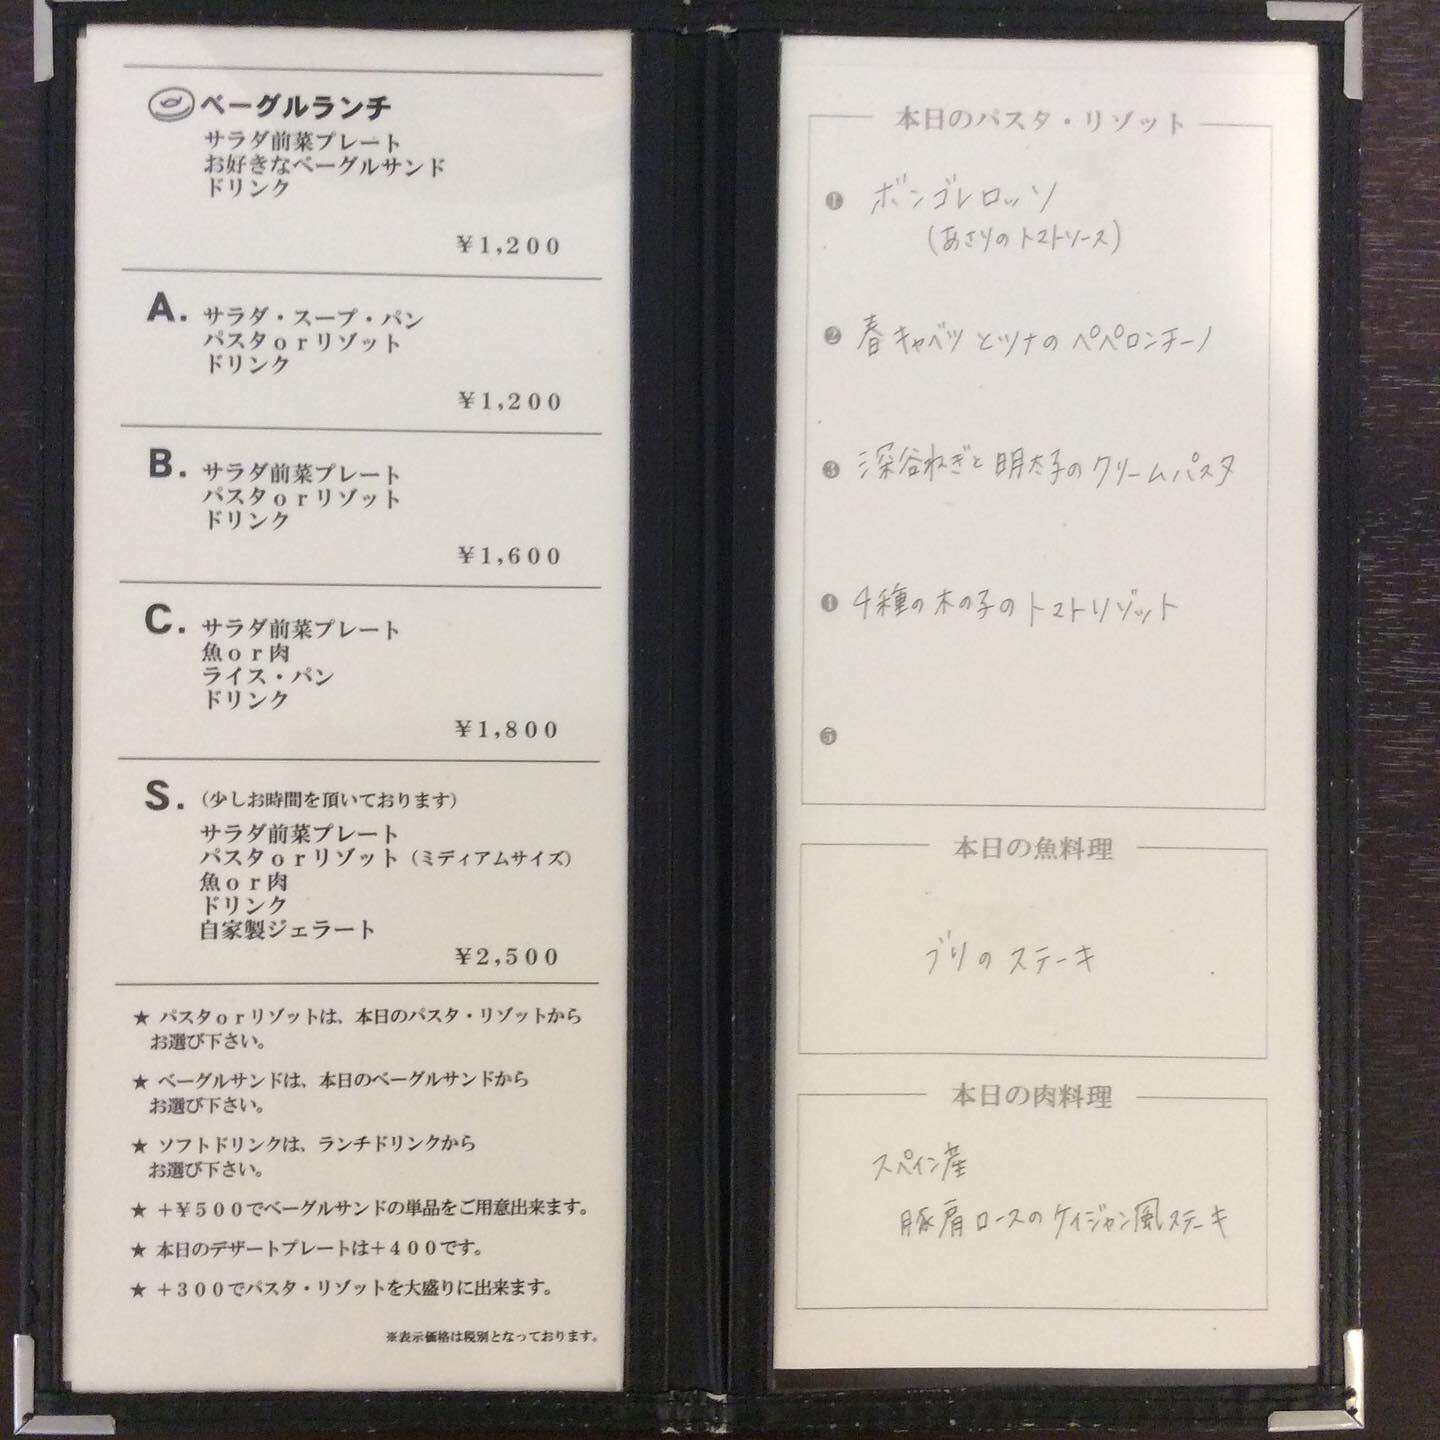 ベーグルランチ
サラダ前菜プレート
お好きなベーグルサンド
ドリンク
¥1,200
A. サラダ・スープ・パン
パスタorリゾット
ドリンク
¥1,200
B. サラダ前菜プレート
パスタorリゾット
ドリンク
¥1,600
C. サラダ前菜プレート
魚or肉
ライス・パン
ドリンク
¥1,800
S. (少しお時間を頂いております)
サラダ前菜プレート
パスタorリゾット(ミディアムサイズ)
魚or肉
ドリンク
自家製ジェラート
¥2,500
★ パスタorリゾットは、本日のパスタ・リゾットから
お選び下さい。
★ ベーグルサンドは、本日のベーグルサンドから
お選び下さい。
★ ソフトドリンクは、ランチドリンクから
お選び下さい。
★ +¥500でベーグルサンドの単品をご用意出来ます。
★ 本日のデザートプレートは+400です。
★ +300でパスタ・リゾットを大盛りに出来ます。
※表示価格は税別となっております。
本日のパスタ・リゾット
❶ ボンゴレロッソ
(あさりのトマトソース)
❷ 春キャベツとツナのペペロンチーノ
❸ 深谷ねぎと明太子のクリームパスタ
❹ 4種の木の子のトマトリゾット
❺
本日の魚料理
ブリのステーキ
本日の肉料理
スペイン産
豚肩ロースのケイジャン風ステーキ